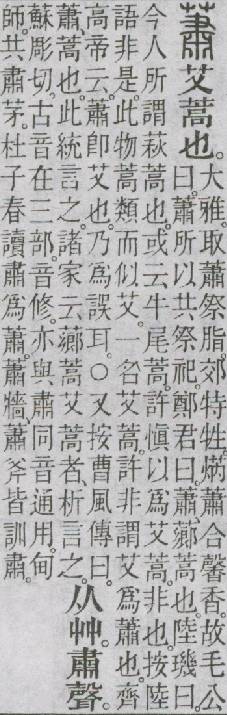 蕭 艾蒿也。
大雅。取蕭祭脂。郊特牲。焫蕭合馨香。故毛公
曰。蕭所以共祭祀。鄭君曰。蕭、薌蒿也。陸璣曰。
今人所謂萩蒿也。或云牛尾蒿。許愼以爲艾蒿。非也。按陸
語非是。此物蒿類而似艾。一名艾蒿。許非謂艾爲蕭也。齊
高帝云。蕭卽艾也。乃爲誤耳。○又按曹風傳曰。
蕭、蒿也。此統言之。諸家云薌蒿艾蒿者、析言之。
从艸。肅聲。
蘇彫切。古音在三部。音修。亦與肅同音通用。甸
師。共肅茅。杜子春讀肅爲蕭。蕭牆、蕭斧皆訓肅。